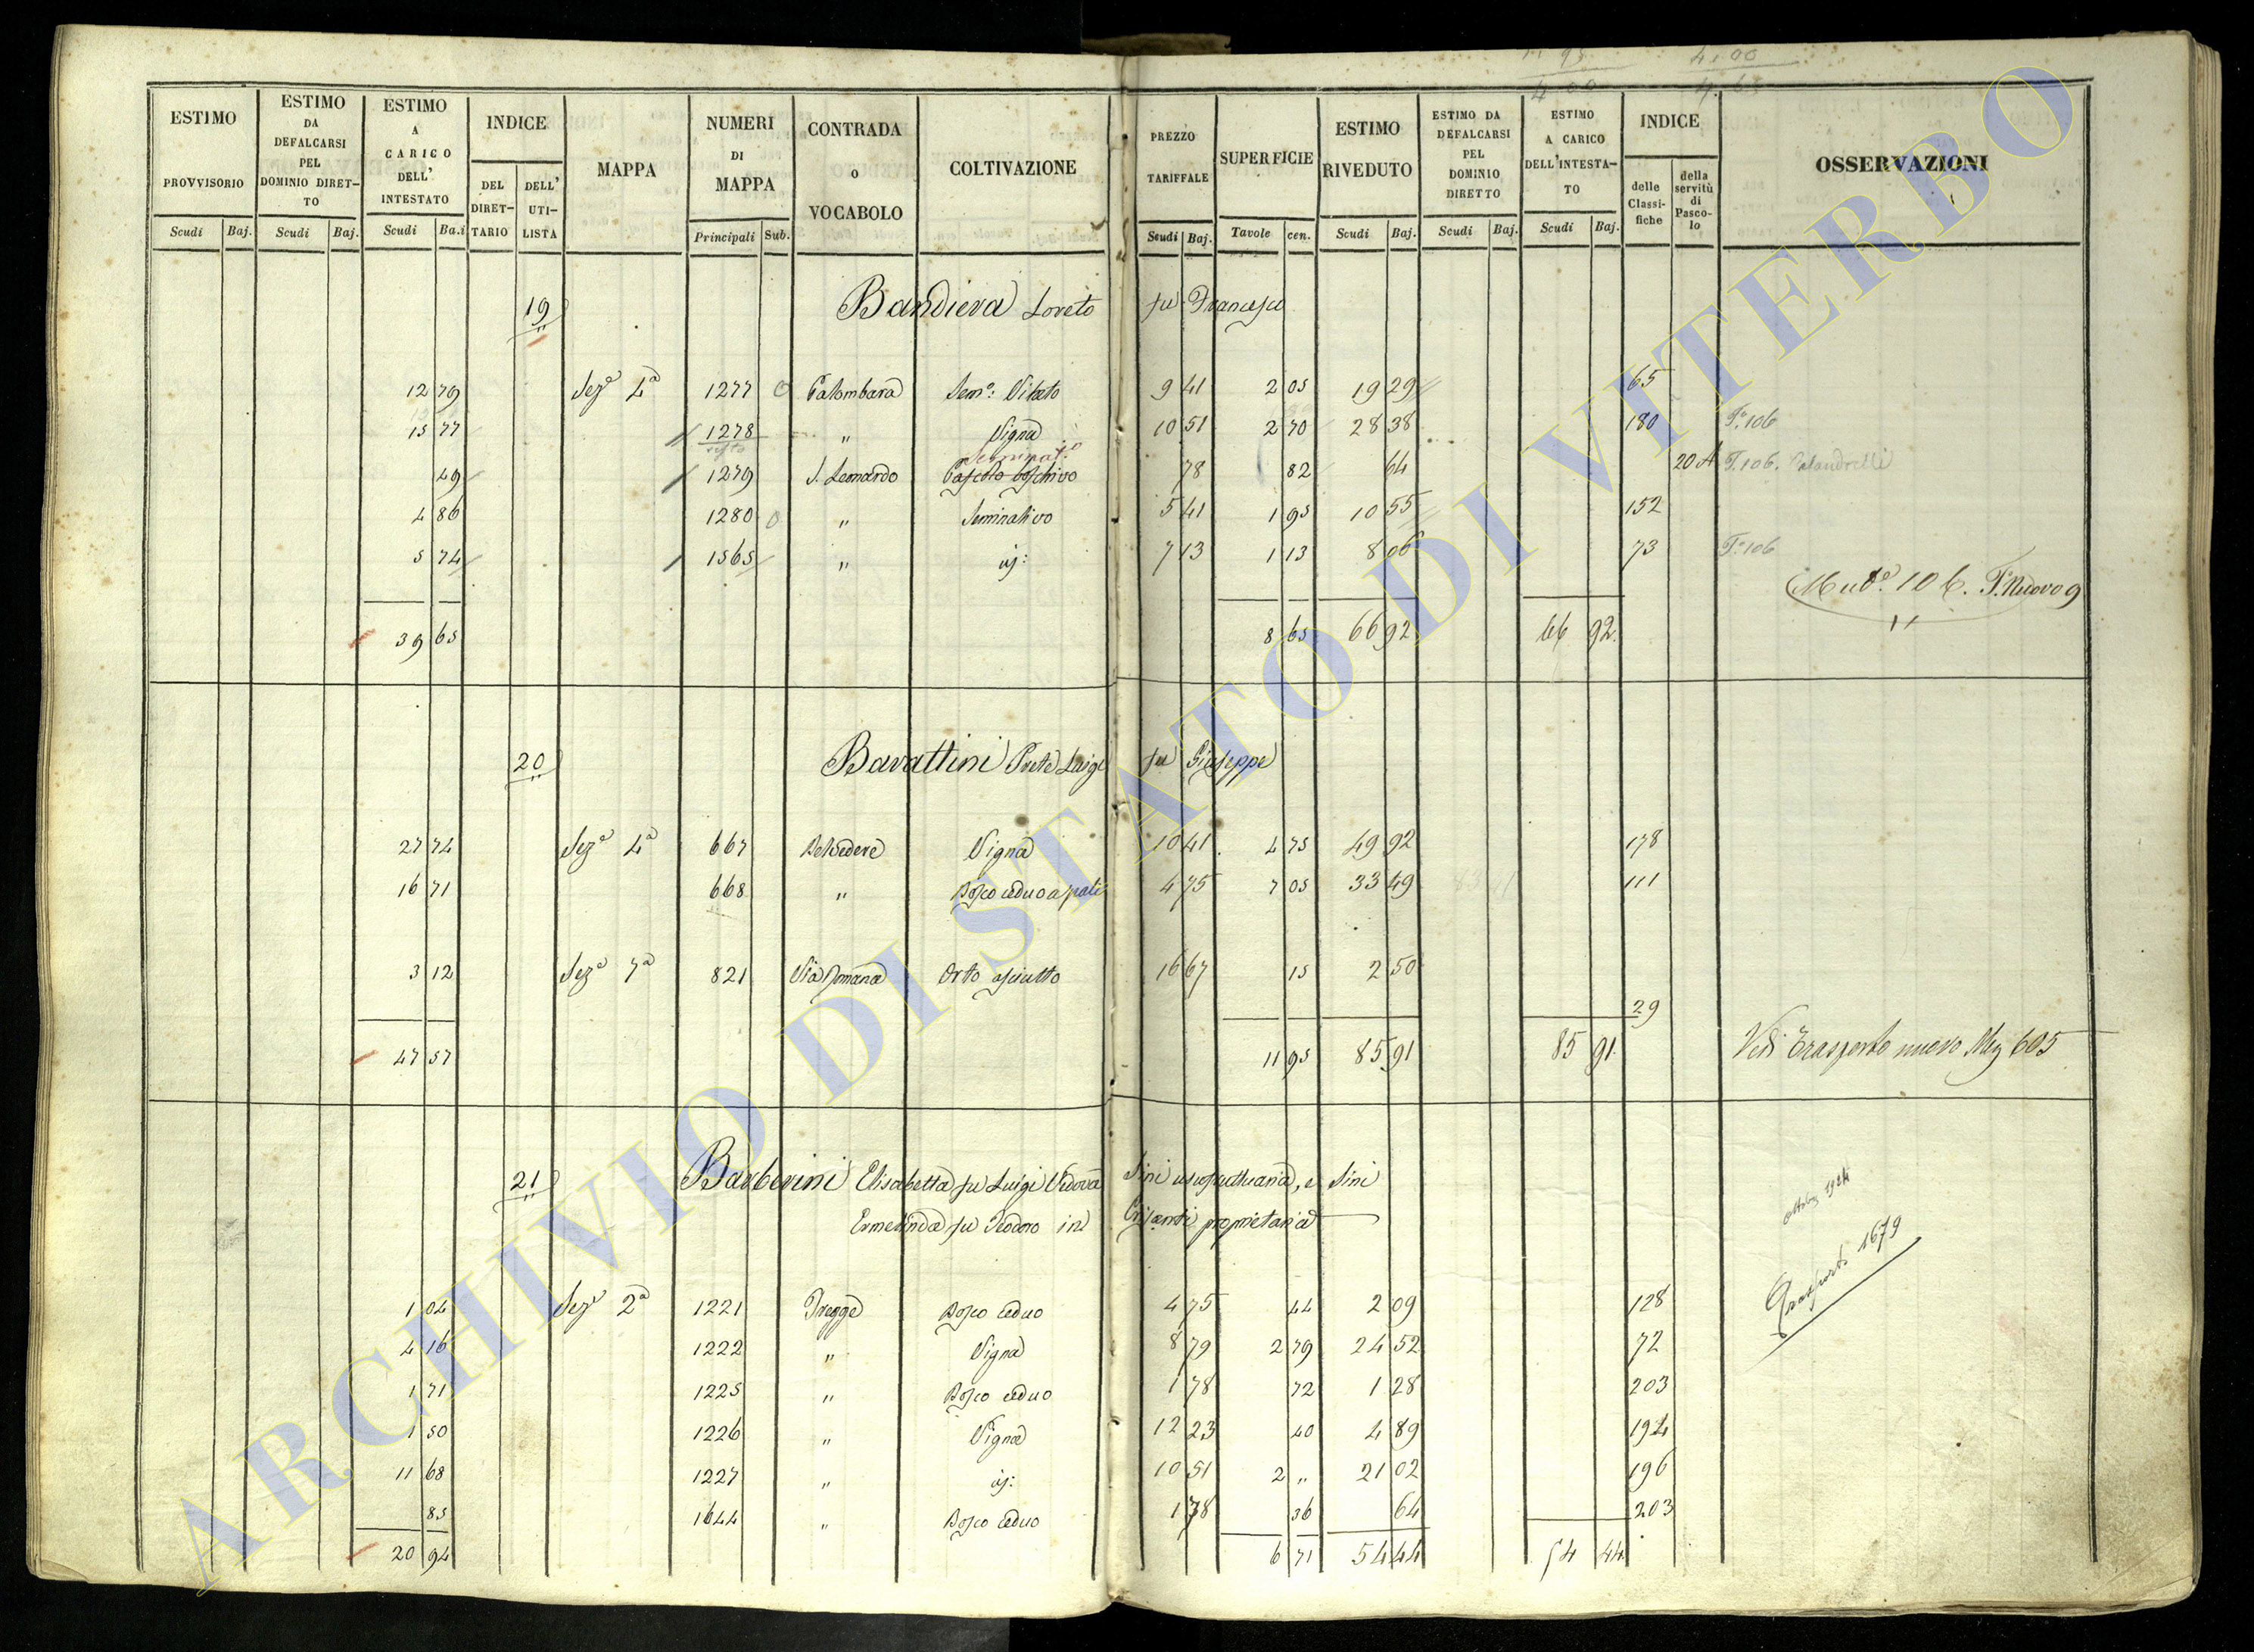 4.00
ESTIMO PROVVISORIO | ESTIMO DA DEFALCARSI PEL DOMINIO DIRETTO | ESTIMO A CARICO DELL' INTESTATO | INDICE | MAPPA | NUMERI DI MAPPA | CONTRADA O VOCABOLO | COLTIVAZIONE | PREZZO TARIFFALE | SUPERFICIE | ESTIMO RIVEDUTO | ESTIMO DA DEFALCARSI PEL DOMINIO DIRETTO | ESTIMO A CARICO DELL'INTESTATO | INDICE | OSSERVAZIONI
DEL DIRETTARIO | DELL' UTILISTA | delle Classifiche | della servitù di Pascolo
Scudi Baj. | Scudi Baj. | Scudi Ba.i | Principali Sub. | Scudi Baj. | Tavole cen. | Scudi Baj. | Scudi Baj. | Scudi Baj.
19 Bandiera Loreto fu Francesco
12 79 Sez.e 4a 1277 0 Palombara Sem.o Vitato 9 41 2 05 19 29 65
15 77 1278 " Vigna 10 51 2 70 28 38 180 F.o 106
resto Seminat.o
49 1279 S. Leonardo Pascolo boschivo 78 82 64 20 A F. 106.
4 86 1280 0 " Seminativo 5 41 1 95 10 55 152
5 74 1565 " id: 7 13 1 13 8 06 73 F.o 106
Mut.e 106. F. Nuovo 9
39 65 8 65 66 92 66 92
20 Barattini Prete Luigi fu Giuseppe
27 74 Sez.e 4a 667 Belvedere Vigna 10 41 4 75 49 92 178
16 71 668 " Bosco ceduo a pali 4 75 7 05 33 49 111
3 12 Sez.e 7a 821 Via Romana Orto asciutto 16 67 15 2 50
29
47 57 11 95 85 91 85 91 Vedi Trasporto nuovo 605
21 Barberini Elisabetta fu Luigi Vedova Sini usufruttuaria, e Sini
Ermelinda fu Teodoro in Crisanti proprietaria
Trasporto 1679
1 04 Sez.e 2a 1221 Bosco Ceduo 4 75 44 2 09 128
4 16 1222 " Vigna 8 79 2 79 24 52 72
1 71 1225 " Bosco ceduo 1 78 72 1 28 203
1 50 1226 " Vigna 12 23 40 4 89 194
11 68 1227 " id: 10 51 2 " 21 02 196
85 1644 " Bosco Ceduo 1 78 36 64 203
20 94 6 71 54 44 54 44
ARCHIVIO DI STATO DI VITERBO